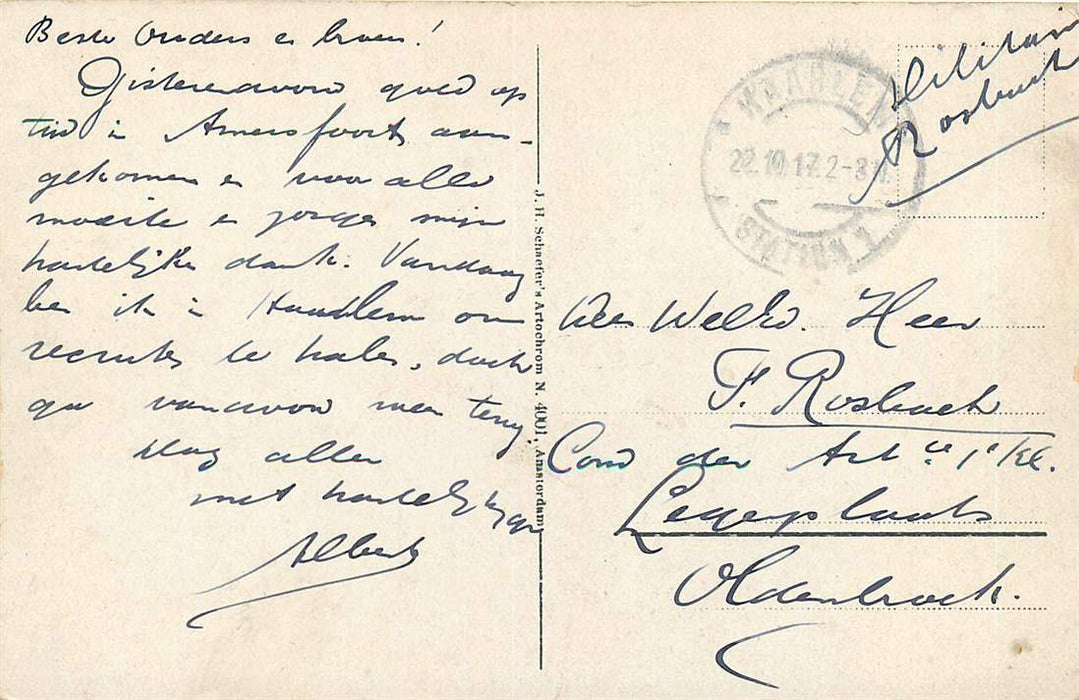 Beste Ouders en broer!
Gisterenavond goed op
tijd in Amersfoort aan-
gekomen en voor alle
moeite en zorgen mijn
hartelijke dank. Vandaag
ben ik in Haarlem om
recruten te halen, doch
ga vanavond weer terug
Dag allen
met hartelijke
Albert
J. H. Schaefer's Artochrom N. 4001, Amsterdam
Militair
Rosbach
HAARLEM
22.10.17.2-3N.
STATION 1
Den WelEd. Heer
F. Rosbach
Cond der Artie 1e Kl.
Legerplaats
Oldenbroek.